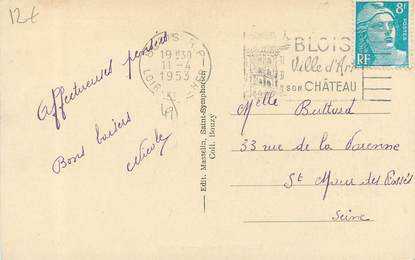 12€
BLOIS
19H30
11-4
1953
LOIR-&-CHER
BLOIS
Ville d'Art
SON CHÂTEAU
8F
POSTES
RF
Affectueuses pensées
Bons baisers
Nicole
Edit. Masselin, Saint-Symphorien
Coll. Bouzy
Melle Bultard
33 rue de la Varenne
St Maur des Fossés
Seine